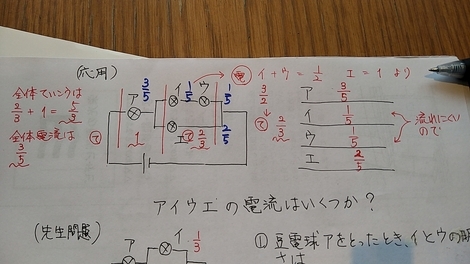 (応用)
全体ていこうは
2/3 + 1 = 5/3
全体電流は
3/5
ア 3/5
イ 1/5 ウ 1/5
エ 2/5
て 1
て 2/3
電 イ+ウ = 1/2 エ = 1 より
3/2
て 2/3
ア 3/5
イ 1/5
ウ 1/5
エ 2/5
流れにくい
ので
アイウエの電流はいくつか?
(先生問題)
ア イ 1/3
① 豆電球アをとったとき、イとウの明
さは